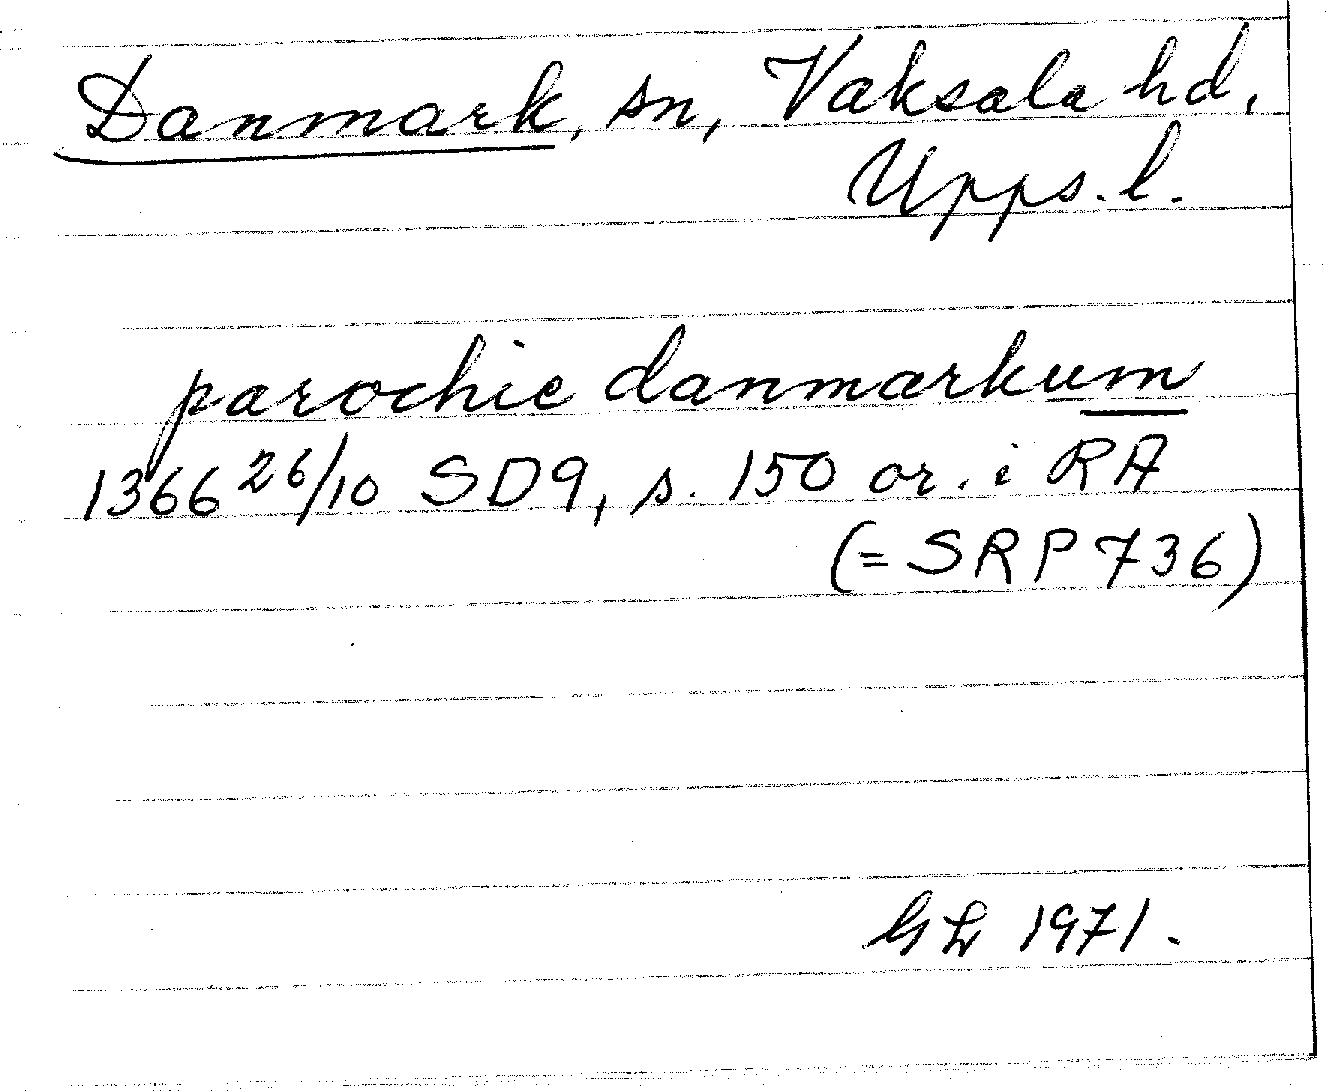 Danmark, sn, Vaksala hd,
Upps. l.
parochie danmarkum
1366 26/10 SD9, s. 150 or. i RA
(= SRP 736)
GL 1971.